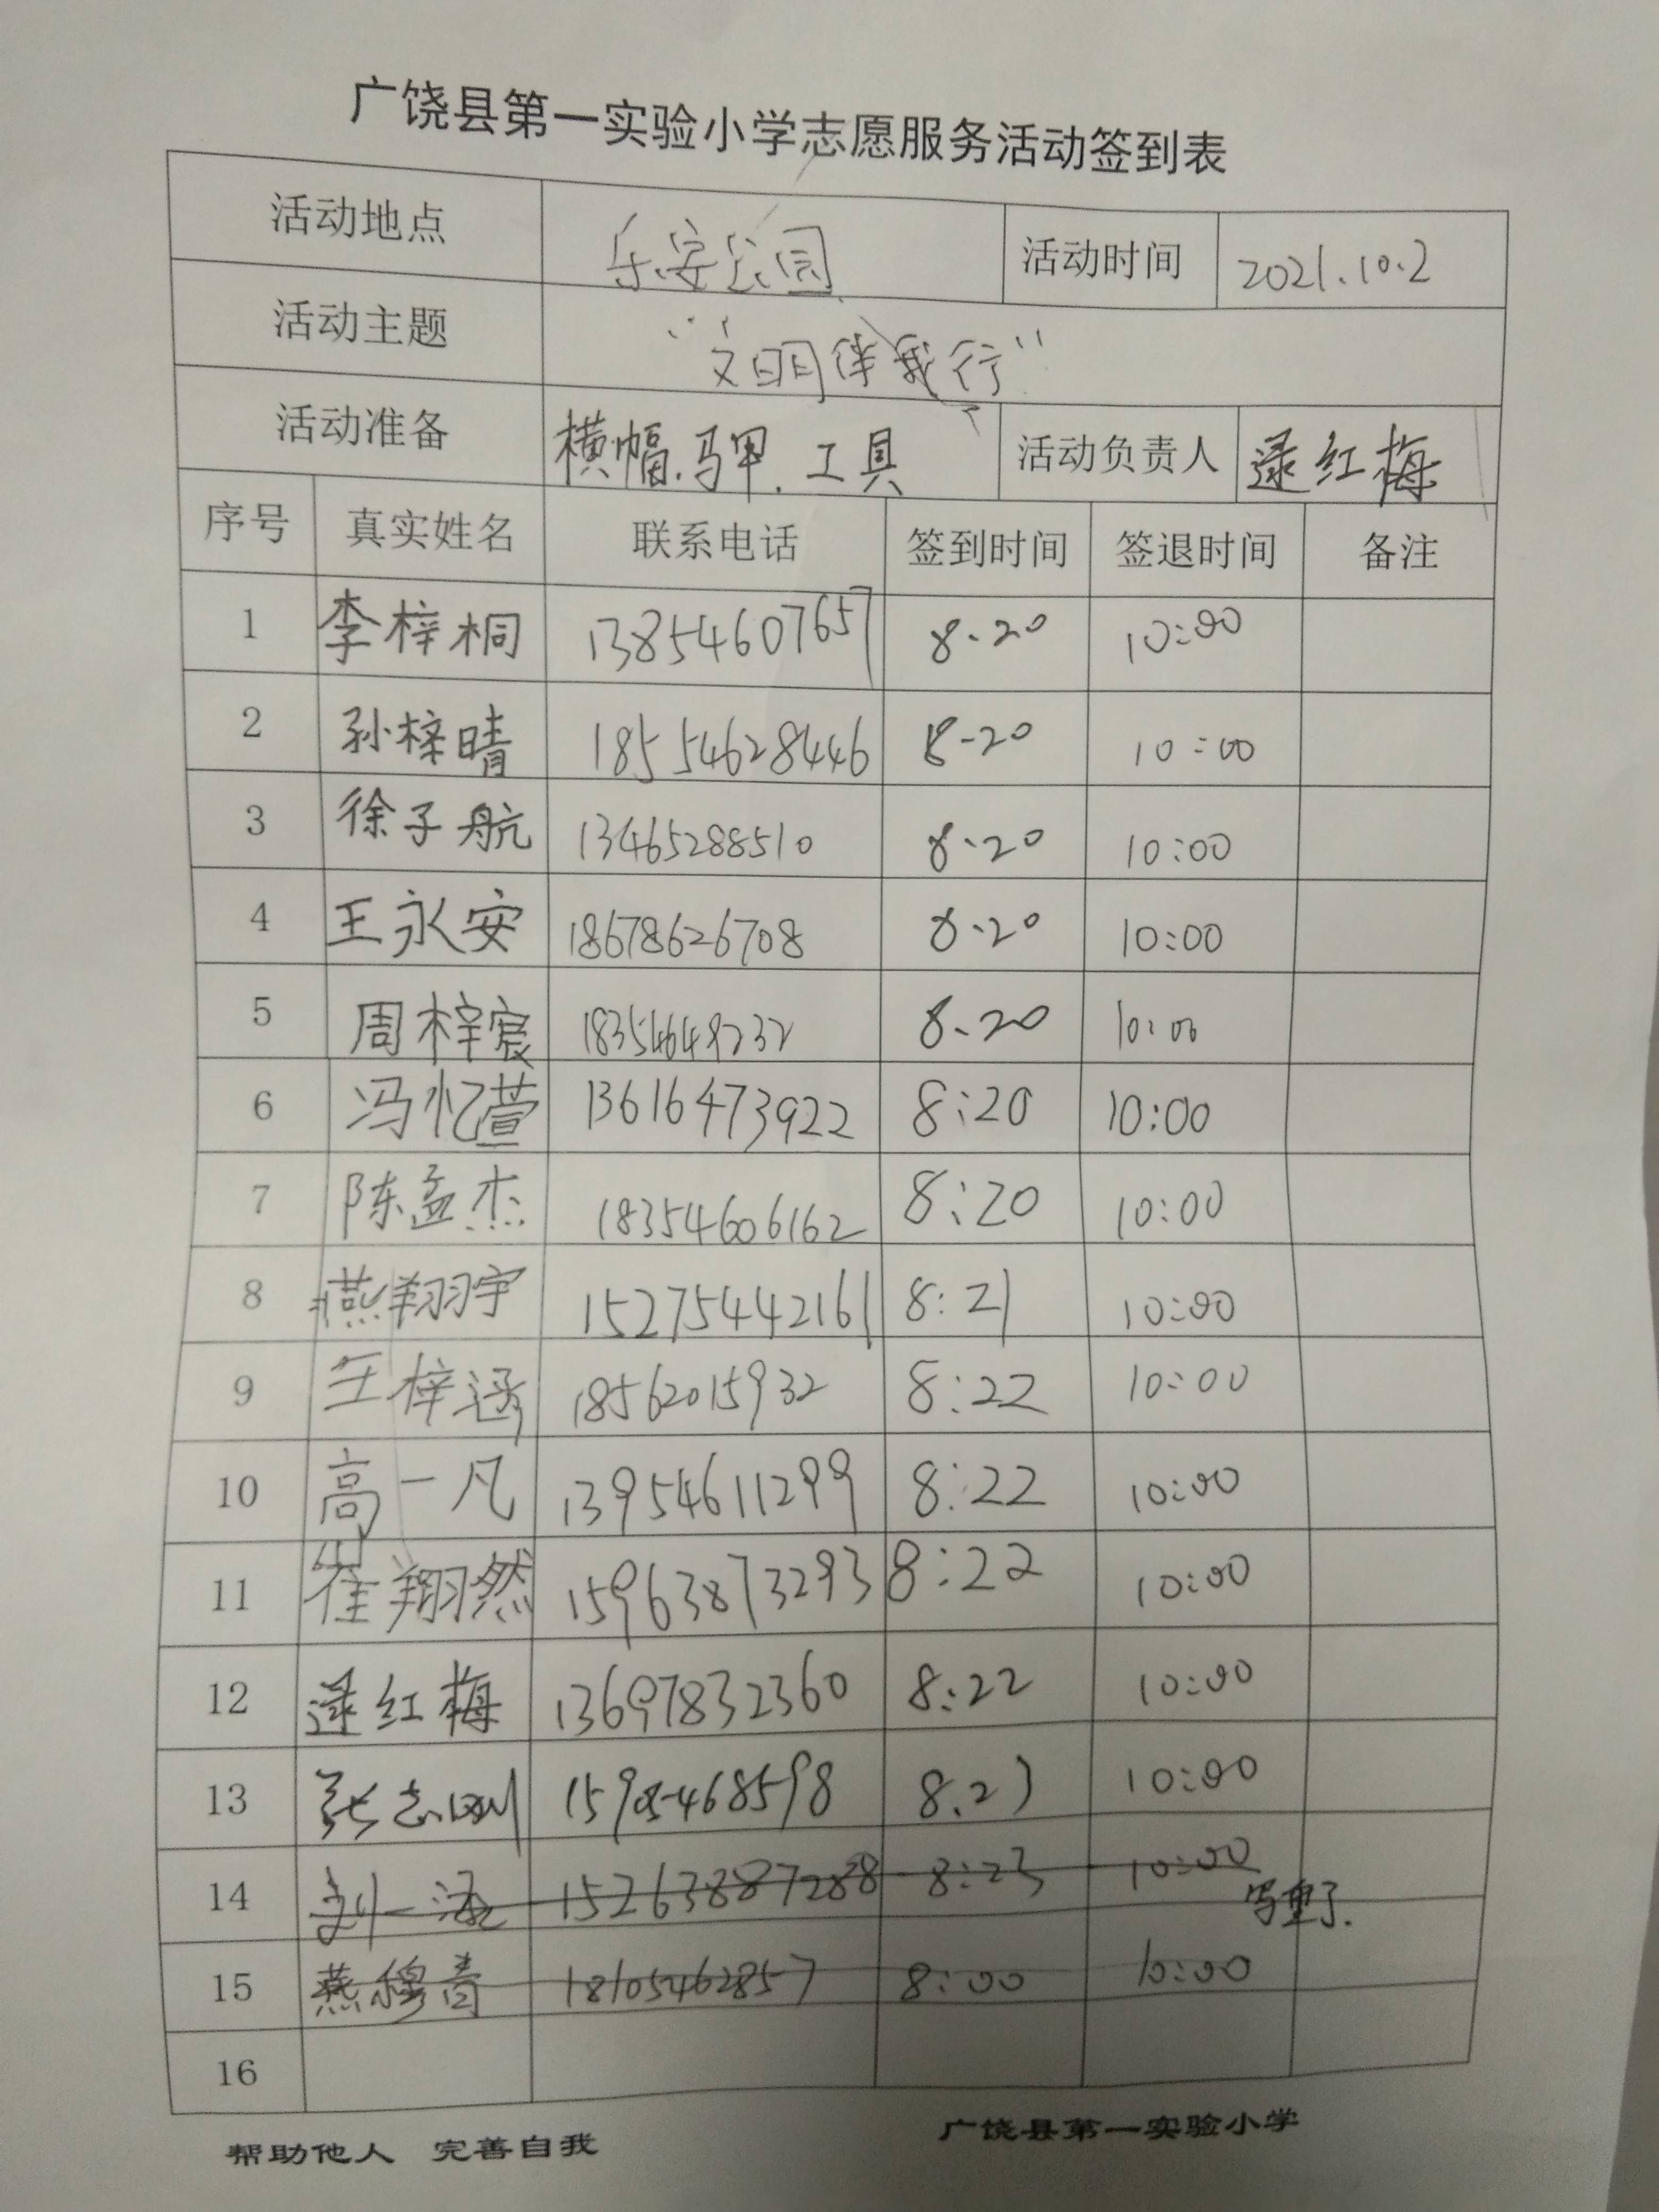 广饶县第一实验小学志愿服务活动签到表
活动地点 乐安公园 活动时间 2021.10.2
活动主题 “文明伴我行”
活动准备 横幅.马甲.工具 活动负责人 逯红梅
序号 真实姓名 联系电话 签到时间 签退时间 备注
1 李梓桐 13854607657 8.20 10:00
2 孙梓晴 18554628446 8-20 10:00
3 徐子航 13465288510 8.20 10:00
4 王永安 18678626708 8.20 10:00
5 周梓宸 18354649232 8.20 10:00
6 冯忆萱 13616473922 8:20 10:00
7 陈孟杰 18354606162 8:20 10:00
8 燕翔宇 15275442161 8:21 10:00
9 王梓涵 18562015932 8:22 10:00
10 高一凡 13954611299 8:22 10:00
11 崔翔然 15963873293 8:22 10:00
12 逯红梅 13697832360 8:22 10:00
13 张志刚 15905468598 8.23 10:00
14 刘一涵 15263887288 8:23 10:00
写重了.
15 燕穆青 18105462857 8:00 10:00
16
帮助他人 完善自我 广饶县第一实验小学